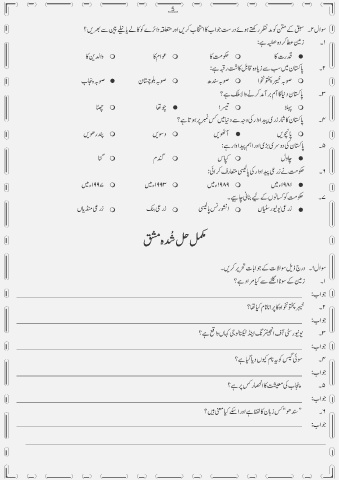 سوال۲۔ سبق کے متن کو مدنظر رکھتے ہوئے درست جواب کا انتخاب کریں اور متعلقہ دائرے کو کالے یا نیلے پین سے بھریں؟
۱۔ زمین عطا کردہ عطیہ ہے:
● قدرت کا ○ حکومت کا ○ عوام کا ○ والدین کا
۲۔ پاکستان میں سب سے زیادہ قابل کاشت رقبہ ہے:
○ صوبہ خیبر پختونخوا ○ صوبہ سندھ ○ صوبہ بلوچستان ● صوبہ پنجاب
۳۔ پاکستان دنیا کا آم برآمد کرنے والا ملک ہے؟
○ پہلا ○ تیسرا ● چوتھا ○ چھٹا
۴۔ پاکستان کا شمار زرعی پیداوار کی وجہ سے دنیا میں کس نمبر پر ہوتا ہے؟
○ پانچویں ● آٹھویں ○ دسویں ○ پندرھویں
۵۔ پاکستان کی دوسری بڑی اور اہم پیداوار ہے:
● چاول ○ کپاس ○ گندم ○ گنا
۶۔ حکومت نے زرعی پیداوار کی پالیسی متعارف کرائی:
● ۱۹۸۱ء میں ○ ۱۹۸۹ء میں ○ ۱۹۹۳ء میں ○ ۱۹۹۷ء میں
۷۔ حکومت کو کسانوں کے لیے بنانی چاہیے۔
● زرعی یونیورسٹیاں ○ انشورنس پالیسی ○ زرعی بینک ○ زرعی منڈیاں
مکمل حل شُدہ مشق
سوال۱۔ درج ذیل سوالات کے جوابات تحریر کریں۔
۱۔ زمین کے سونا اگلنے سے کیا مراد ہے؟
جواب:
۲۔ خیبر پختونخواہ کا پرانا نام کیا تھا؟
جواب:
۳۔ یونیورسٹی آف انجینئرنگ اینڈ ٹیکنالوجی کہاں واقع ہے؟
جواب:
۴۔ سوئی گیس کو یہ نام کیوں دیا گیا ہے؟
جواب:
۵۔ پنجاب کی معیشت کا انحصار کس پر ہے؟
جواب:
۶۔ "سندھو" کس زبان کا لفظ ہے اور اسکے کیا معنی ہیں؟
جواب: